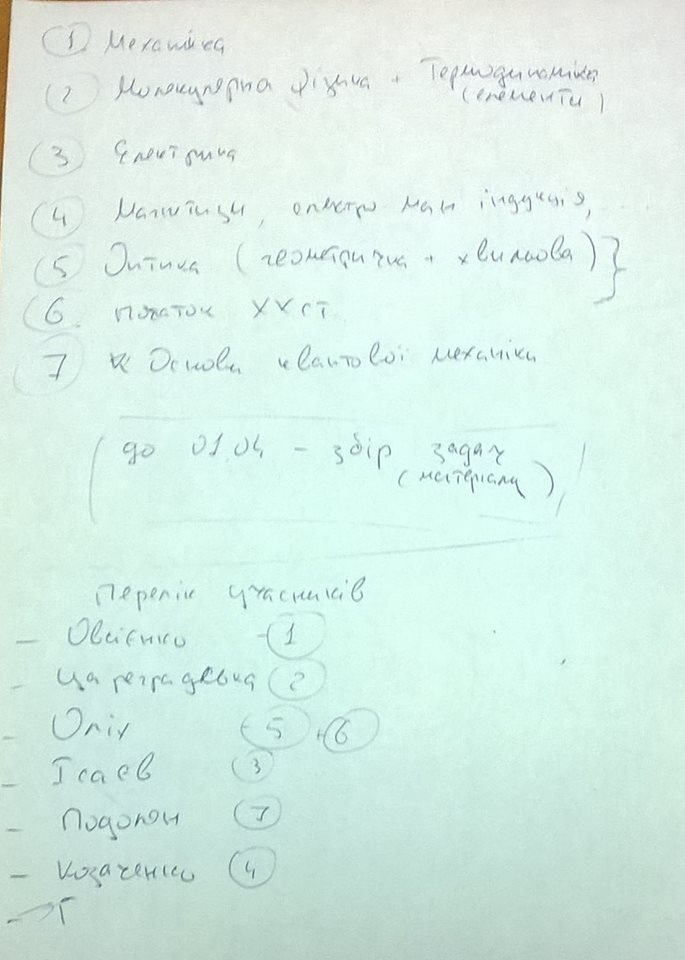 1 Механіка
2 Молекулярна фізика + Термодинаміка
(елементи)
3 Електрика
4 Магнетизм, електро маг індукція,
5 Оптика (геометрична + хвильова) }
6 початок ХХ ст.
7 Основи квантової механіки
до 01.04 - збір задач
(матеріалу)
Перелік учасників
- Овсієнко - 1
- Цареградська 2
- Оліх - 5 + 6
- Ісаєв 3
- Подолян 7
- Козаченко 4